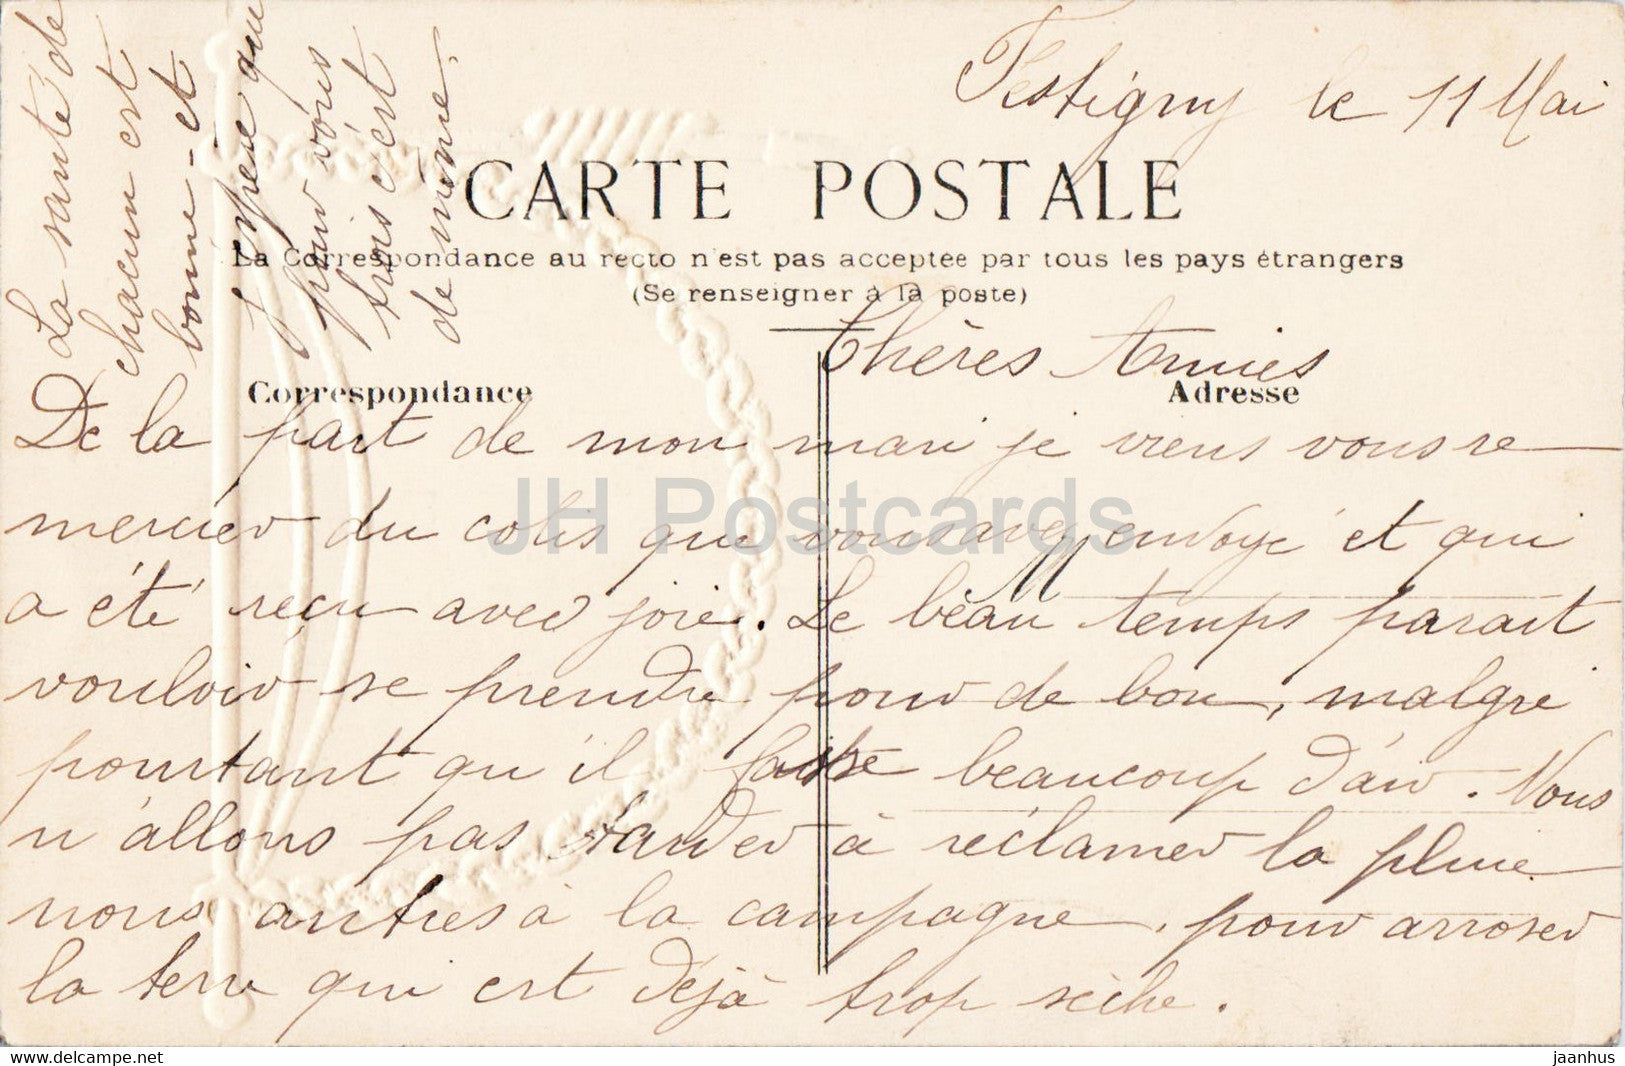 Festigny le 11 Mai
CARTE POSTALE
La Correspondance au recto n'est pas acceptée par tous les pays étrangers
(Se renseigner à la poste)
Correspondance
Adresse
Chères Amies
De la part de mon mari je viens vous re
mercier du colis que vous avez envoyé et qui
a été reçu avec joie. Le beau temps parait
vouloir se prendre pour de bon, malgré
pourtant qu'il fasse beaucoup d'air. Nous
n'allons pas tarder à réclamer la pluie
nous autres à la campagne, pour arroser
la terre qui est déjà trop sèche.
La santé de
chacun est
bonne et
j'espère que
pour vous
trois c'est
de même.
M
JH Postcards
https://www.delcampe.net
jaanhus